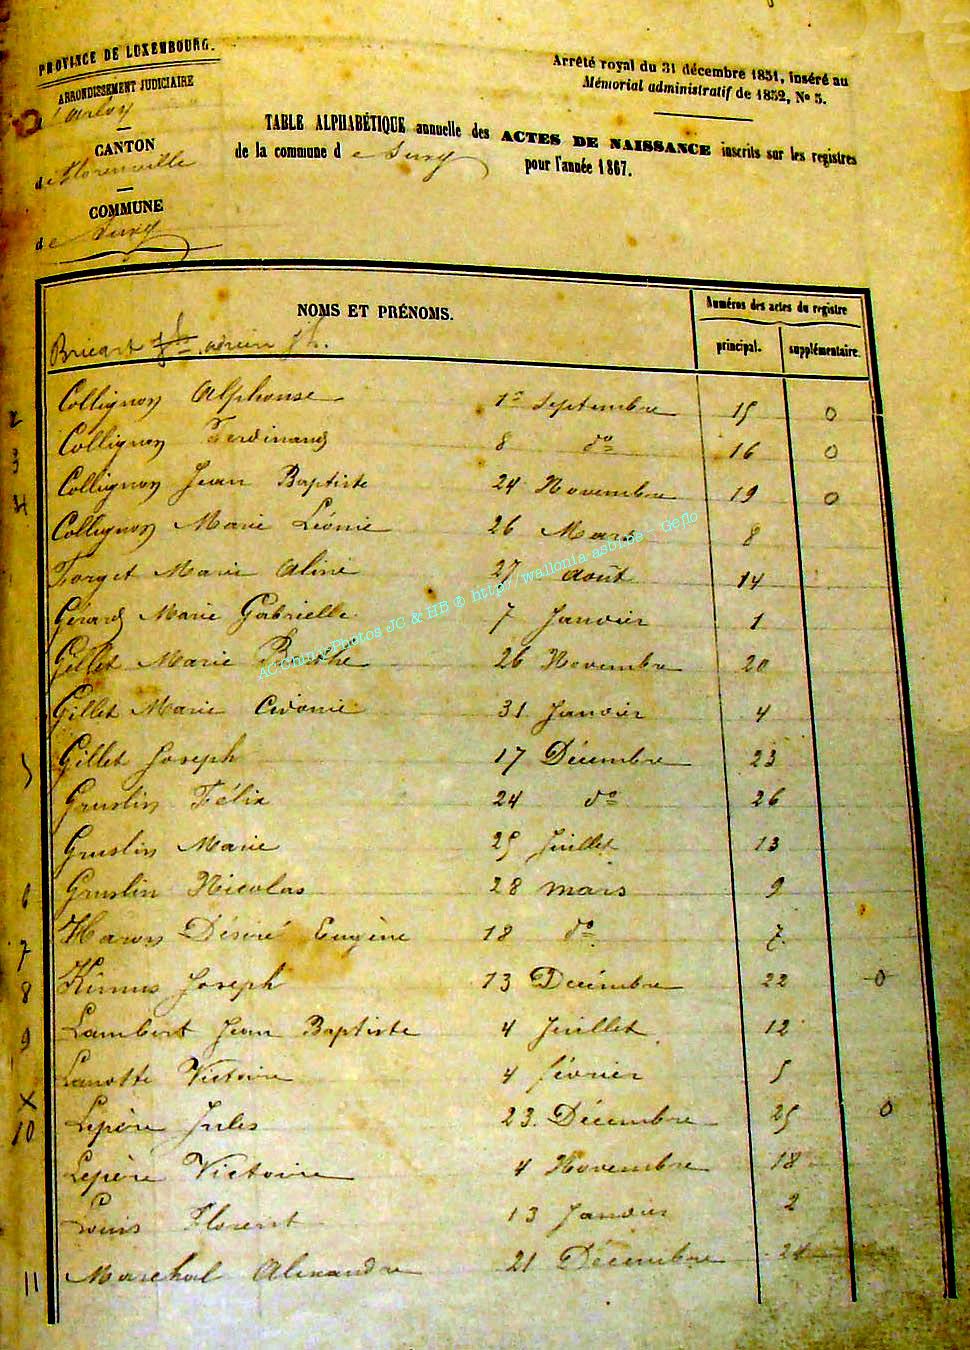 PROVINCE DE LUXEMBOURG.
ARRONDISSEMENT JUDICIAIRE
d'Arlon
CANTON
de Florenville
COMMUNE
de Suxy
Arrêté royal du 31 décembre 1851, inséré au
Mémorial administratif de 1852, No 5.
TABLE ALPHABÉTIQUE annuelle des ACTES DE NAISSANCE inscrits sur les registres
de la commune de Suxy pour l'année 1867.
NOMS ET PRÉNOMS.
Numéros des actes du registre
principal. supplémentaire.
Bricart adrien jh.
2 Collignon Alphonse 1er Septembre 15 0
3 Collignon Ferdinand 8 do 16 0
4 Collignon Jean Baptiste 24 Novembre 19 0
Collignon Marie Léonie 26 Mars 8
Forget Marie Aline 27 Août 14
Gérard Marie Gabrielle 7 Janvier 1
Gillet Marie Berthe 26 Novembre 20
Gillet Marie 31 Janvier 4
5 Gillet Joseph 17 Décembre 23
Gruslin Félix 24 do 26
Gruslin Marie 25 Juillet 13
6 Gruslin Nicolas 28 mars 9
7 Haron Désiré Eugène 18 do 7
8 Joseph 13 Décembre 22 0
9 Lambert Jean Baptiste 4 Juillet 12
Lanotte Victoire 4 février 5
X
10 Lepère Jules 23. Décembre 25 0
Lepère Victoire 4 Novembre 18
Louis Florent 13 Janvier 2
11 Marchal Alexandre 21 Décembre 24
ACChiny Photos JC & HB © http://wallonia-asbl.be - Geflo